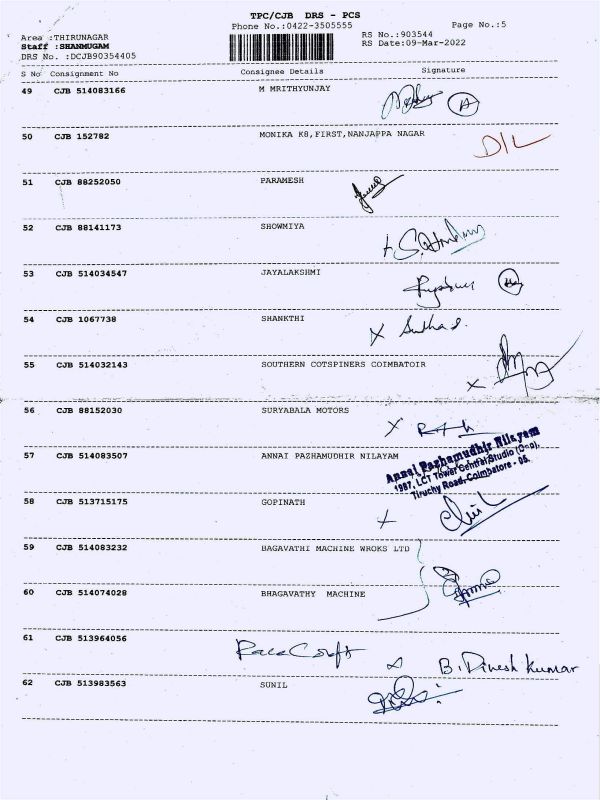 TPC/CJB DRS - PCS
Phone No.:0422-3505555 Page No.:5
Area :THIRUNAGAR RS No.:903544
Staff :SHANMUGAM RS Date:09-Mar-2022
DRS No. :DCJB90354405
S No Consignment No Consignee Details Signature
49 CJB 514083166 M MRITHYUNJAY
50 CJB 152782 MONIKA K8,FIRST,NANJAPPA NAGAR D/L
51 CJB 88252050 PARAMESH
52 CJB 88141173 SHOWMIYA
53 CJB 514034547 JAYALAKSHMI
54 CJB 1067738 SHANKTHI
55 CJB 514032143 SOUTHERN COTSPINERS COIMBATOIR
56 CJB 88152030 SURYABALA MOTORS
57 CJB 514083507 ANNAI PAZHAMUDHIR NILAYAM
Annai Pazhamudhir Nilayam
1987, LCT Tower Central Studio (Opp),
Tiruchy Road, Coimbatore - 05.
58 CJB 513715175 GOPINATH
59 CJB 514083232 BAGAVATHI MACHINE WROKS LTD
60 CJB 514074028 BHAGAVATHY MACHINE
61 CJB 513964056 B. Dinesh kumar
62 CJB 513983563 SUNIL